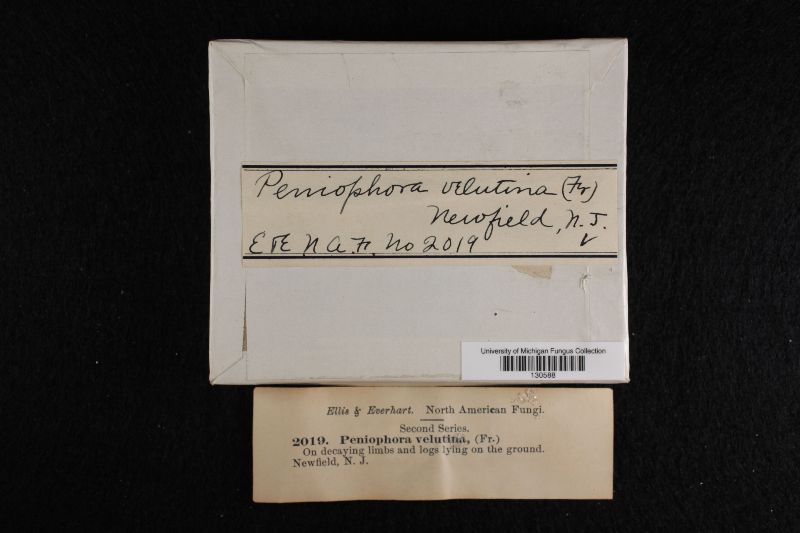 Peniophora velutina (Fr)
Newfield, N. J.
E & E N A. F. No 2019
University of Michigan Fungus Collection
130588
Ellis & Everhart. North American Fungi.
Second Series.
2019. Peniophora velutina, (Fr.)
On decaying limbs and logs lying on the ground.
Newfield, N. J.